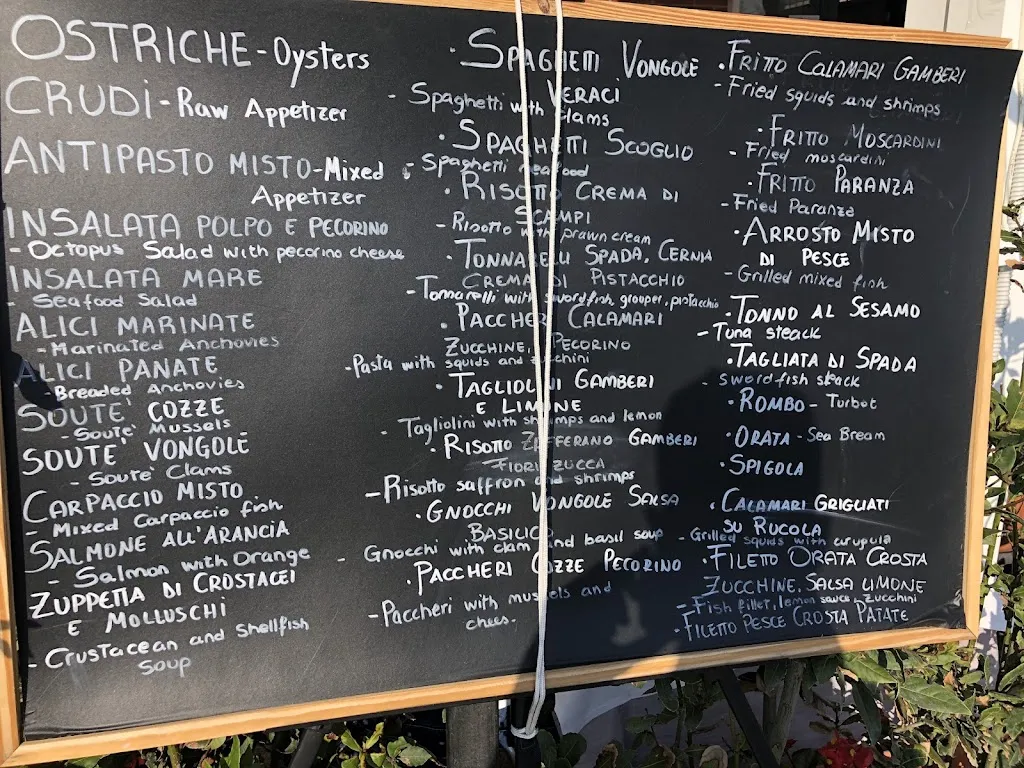 OSTRICHE - Oysters
CRUDI - Raw Appetizer
ANTIPASTO MISTO - Mixed
Appetizer
INSALATA POLPO E PECORINO
- Octopus Salad with pecorino cheese
INSALATA MARE
- Seafood Salad
ALICI MARINATE
- Marinated Anchovies
ALICI PANATE
- Breaded Anchovies
SOUTE' COZZE
- Soute' Mussels
SOUTE' VONGOLE
- Soute' Clams
CARPACCIO MISTO
- Mixed Carpaccio fish
SALMONE ALL'ARANCIA
- Salmon with Orange
ZUPPETTA DI CROSTACEI
E MOLLUSCHI
- Crustacean and Shellfish
Soup
· SPAGHETTI VONGOLE
VERACI
- Spaghetti with Clams
· SPAGHETTI SCOGLIO
- Spaghetti seafood
· RISOTTO CREMA DI
SCAMPI
- Risotto with prawn cream
· TONNARELLI SPADA, CERNIA
CREMA DI PISTACCHIO
- Tonnarelli with swordfish, grouper, pistacchio
· PACCHERI CALAMARI
ZUCCHINE, PECORINO
- Pasta with squids and zucchini
· TAGLIOLINI GAMBERI
E LIMONE
- Tagliolini with shrimps and lemon
· RISOTTO ZAFFERANO GAMBERI
FIORI ZUCCA
- Risotto saffron and shrimps
· GNOCCHI VONGOLE SALSA
BASILICO
- Gnocchi with clam and basil soup
· PACCHERI COZZE PECORINO
- Paccheri with mussels and
chees.
· FRITTO CALAMARI GAMBERI
- Fried squids and shrimps
· FRITTO MOSCARDINI
- Fried moscardini
· FRITTO PARANZA
- Fried Paranza
· ARROSTO MISTO
DI PESCE
- Grilled mixed fish
· TONNO AL SESAMO
- Tuna steack
· TAGLIATA DI SPADA
- Swordfish steack
· ROMBO - Turbot
· ORATA - Sea Bream
· SPIGOLA
· CALAMARI GRIGLIATI
SU RUCOLA
- Grilled squids with arupula
· FILETTO ORATA CROSTA
ZUCCHINE, SALSA LIMONE
- Fish fillet, lemon sauce, zucchini
· FILETTO PESCE CROSTA PATATE